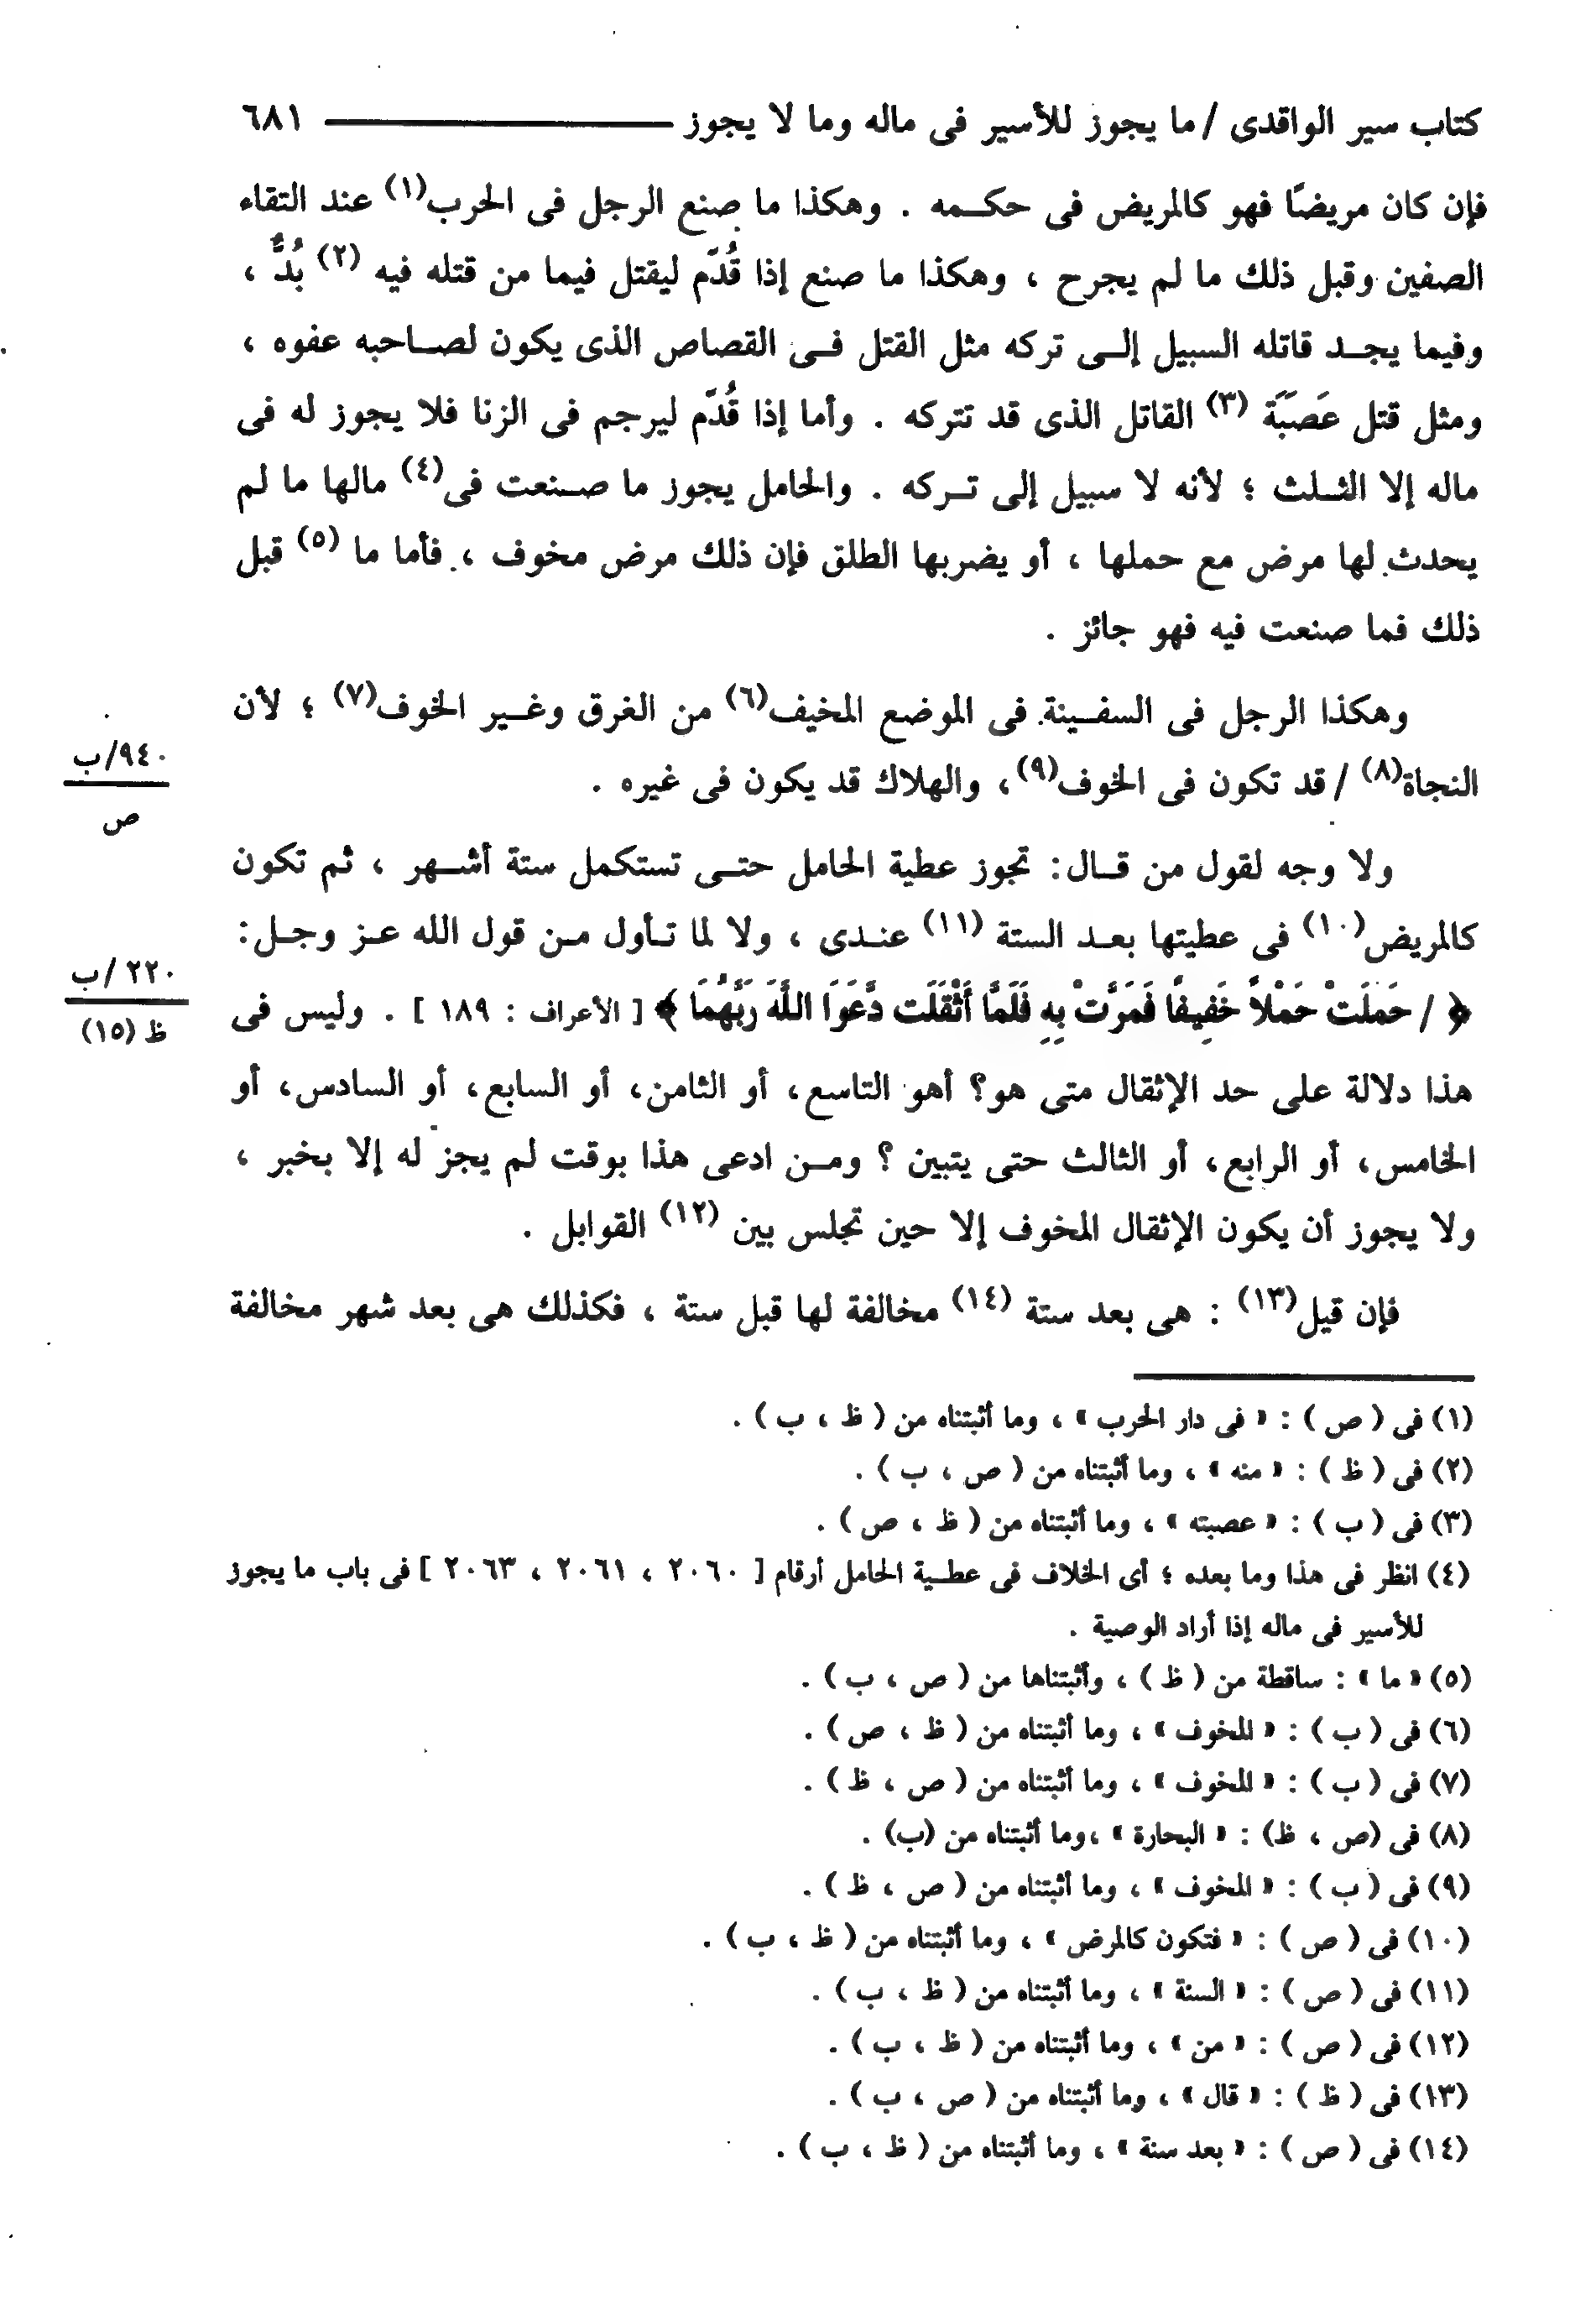 كتاب سير الواقدى / ما يجوز للأسير فى ماله وما لا يجوز ـــــــ ٦٨١
فإن كان مريضًا فهو كالمريض فى حكمه . وهكذا ما صنع الرجل فى الحرب(١) عند التقاء
الصفين وقبل ذلك ما لم يجرح ، وهكذا ما صنع إذا قُدِّم ليقتل فيما من قتله فيه (٢) بُدٌّ ،
وفيما يجد قاتله السبيل إلى تركه مثل القتل فى القصاص الذى يكون لصاحبه عفوه ،
ومثل قتل عَصَبَة (٣) القاتل الذى قد تتركه . وأما إذا قُدِّم ليرجم فى الزنا فلا يجوز له فى
ماله إلا الثلث ؛ لأنه لا سبيل إلى تركه . والحامل يجوز ما صنعت فى(٤) مالها ما لم
يحدث لها مرض مع حملها ، أو يضربها الطلق فإن ذلك مرض مخوف ، فأما ما (٥) قبل
ذلك فما صنعت فيه فهو جائز .
وهكذا الرجل فى السفينة فى الموضع المخيف(٦) من الغرق وغير الخوف(٧) ؛ لأن
النجاة(٨) / قد تكون فى الخوف(٩) ، والهلاك قد يكون فى غيره .
٩٤٠/ب
ص
ولا وجه لقول من قال: تجوز عطية الحامل حتى تستكمل ستة أشهر ، ثم تكون
كالمريض(١٠) فى عطيتها بعد الستة (١١) عندى ، ولا لما تأول من قول الله عز وجل:
﴿ / حَمَلَتْ حَمْلاً خَفِيفًا فَمَرَّتْ بِهِ فَلَمَّا أَثْقَلَت دَّعَوَا اللَّهَ رَبَّهُمَا ﴾ [ الأعراف : ١٨٩ ] . وليس فى
٢٢٠ /ب
ظ (١٥)
هذا دلالة على حد الإثقال متى هو؟ أهو التاسع، أو الثامن، أو السابع، أو السادس، أو
الخامس، أو الرابع، أو الثالث حتى يتبين ؟ ومن ادعى هذا بوقت لم يجز له إلا بخبر ،
ولا يجوز أن يكون الإثقال المخوف إلا حين تجلس بين (١٢) القوابل .
فإن قيل(١٣) : هى بعد ستة (١٤) مخالفة لها قبل ستة ، فكذلك هى بعد شهر مخالفة
(١) فى ( ص ) : « فى دار الحرب » ، وما أثبتناه من ( ظ ، ب ) .
(٢) فى ( ظ ) : « منه » ، وما أثبتناه من ( ص ، ب ) .
(٣) فى ( ب ) : « عصبته » ، وما أثبتناه من ( ظ ، ص ) .
(٤) انظر فى هذا وما بعده ؛ أى الخلاف فى عطية الحامل أرقام [ ٢٠٦٠ ، ٢٠٦١ ، ٢٠٦٣ ] فى باب ما يجوز
للأسير فى ماله إذا أراد الوصية .
(٥) « ما » : ساقطة من ( ظ ) ، وأثبتناها من ( ص ، ب ) .
(٦) فى ( ب ) : « المخوف » ، وما أثبتناه من ( ظ ، ص ) .
(٧) فى ( ب ) : « المخوف » ، وما أثبتناه من ( ص ، ظ ) .
(٨) فى (ص ، ظ) : « البحارة » ،وما أثبتناه من (ب) .
(٩) فى ( ب ) : « المخوف » ، وما أثبتناه من ( ص ، ظ ) .
(١٠) فى ( ص ) : « فتكون كالمرض » ، وما أثبتناه من ( ظ ، ب ) .
(١١) فى ( ص ) : « السنة » ، وما أثبتناه من ( ظ ، ب ) .
(١٢) فى ( ص ) : « من » ، وما أثبتناه من ( ظ ، ب ) .
(١٣) فى ( ظ ) : « قال » ، وما أثبتناه من ( ص ، ب ) .
(١٤) فى ( ص ) : « بعد سنة » ، وما أثبتناه من ( ظ ، ب ) .